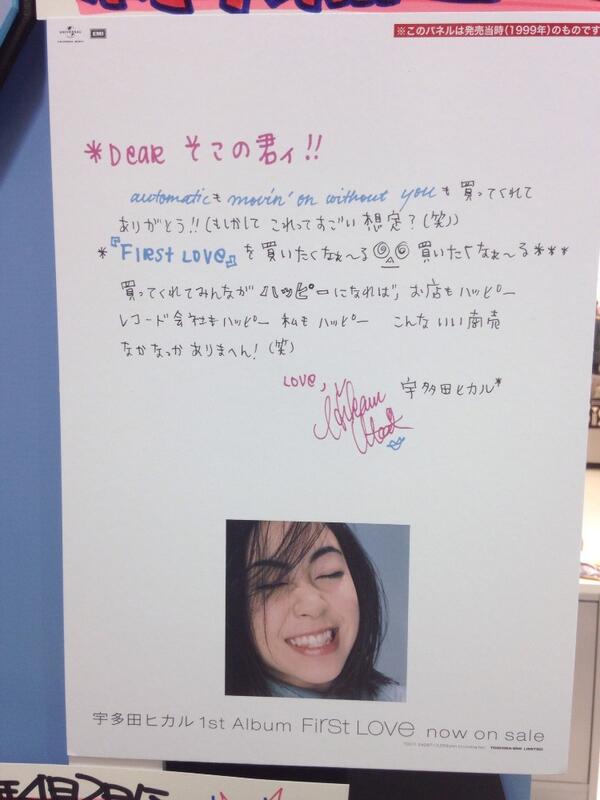 UNIVERSAL
EMI
※このパネルは発売当時(1999年)のものです
*Dear そこの君ィ!!
automaticも movin' on without youも 買ってくれて
ありがとう!!(もしかして これってすごい 想定?(笑))
*『First Love』を買いたくなぁ〜る 買いたくなぁ〜る***
買ってくれてみんながハッピーになれば、お店もハッピー
レコード会社もハッピー 私もハッピー こんないい商売
なかなっか ありまへん!(笑)
Love, 宇多田ヒカル*
Hikaru Utada
宇多田ヒカル 1st Album First Love now on sale
TOSHIBA-EMI LIMITED